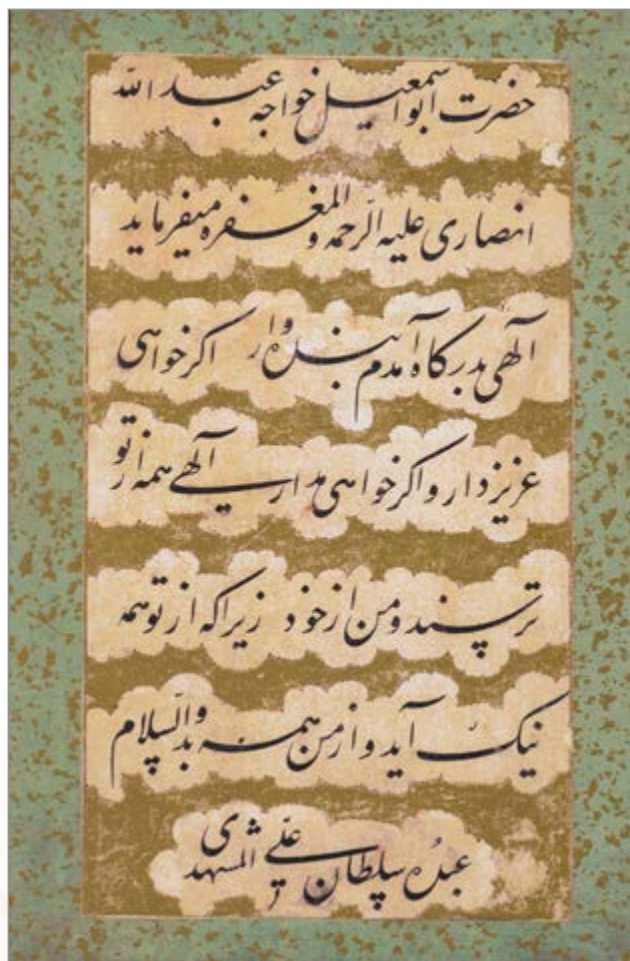 حضرت ابواسمعیل خواجه عبد الله
انصاری علیه الرّحمه والمغفره میفرماید
آلهی بدرکاه آمدم بنده وار اکر خواهی
عزیز دار و اکر خواهی مدار آلهی همه از تو
ترسند و من از خود زیرا که از تو همه
نیک آید و از من همه بد والسّلام
عبدُه سلطان علی المشهدی